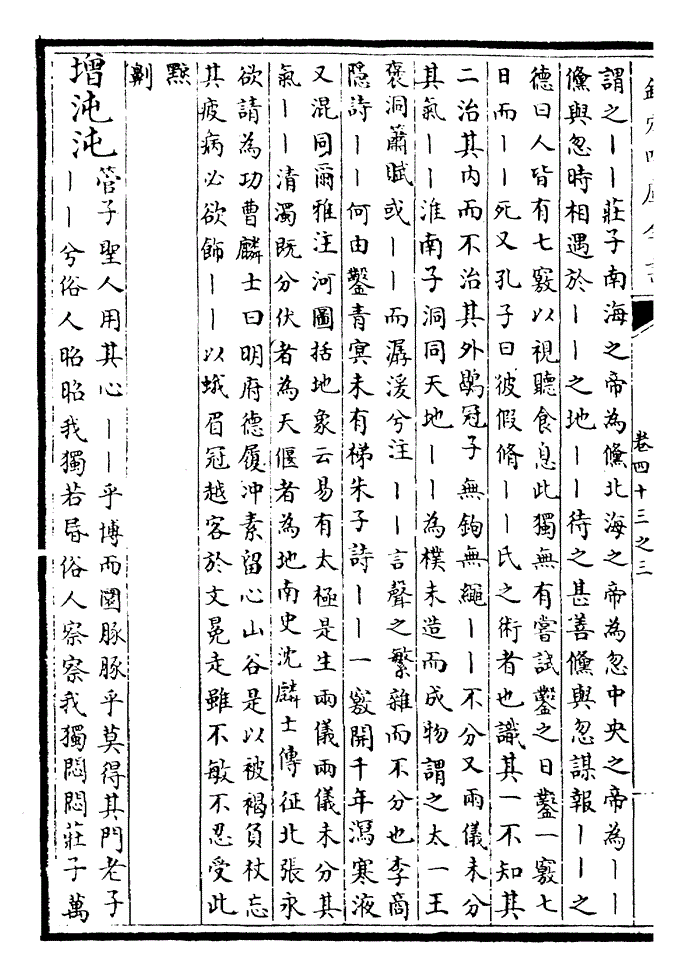 卷四十三之三
謂之丨丨莊子南海之帝為儵北海之帝為忽中央之帝為丨丨
儵與忽時相遇於丨丨之地丨丨待之甚善儵與忽謀報丨丨之
德曰人皆有七竅以視聽食息此獨無有嘗試鑿之日鑿一竅七
日而丨丨死又孔子曰彼假脩丨丨氏之術者也識其一不知其
二治其內而不治其外鶡冠子無鉤無繩丨丨不分又兩儀未分
其氣丨丨淮南子洞同天地丨丨為樸未造而成物謂之太一王
褒洞簫賦或丨丨而潺湲兮注丨丨言聲之繁雜而不分也李商
隱詩丨丨何由鑿青冥未有梯朱子詩丨丨一竅開千年瀉寒液
又混同爾雅注河圖括地象云易有太極是生兩儀兩儀未分其
氣丨丨清濁既分伏者為天偃者為地南史沈麟士傳征北張永
欲請為功曹麟士曰明府德履沖素留心山谷是以被褐負杖忘
其疲病必欲飾丨丨以蛾眉冠越客於文冕走雖不敏不忍受此
黥
劓
增沌沌管子聖人用其心丨丨乎博而圜豚豚乎莫得其門老子
丨丨兮俗人昭昭我獨若昏俗人察察我獨悶悶莊子萬